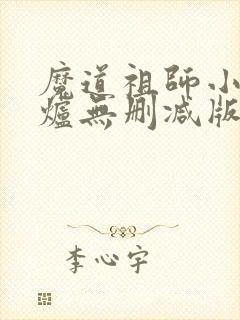 魔道祖師小
爐無删減版
李心宇